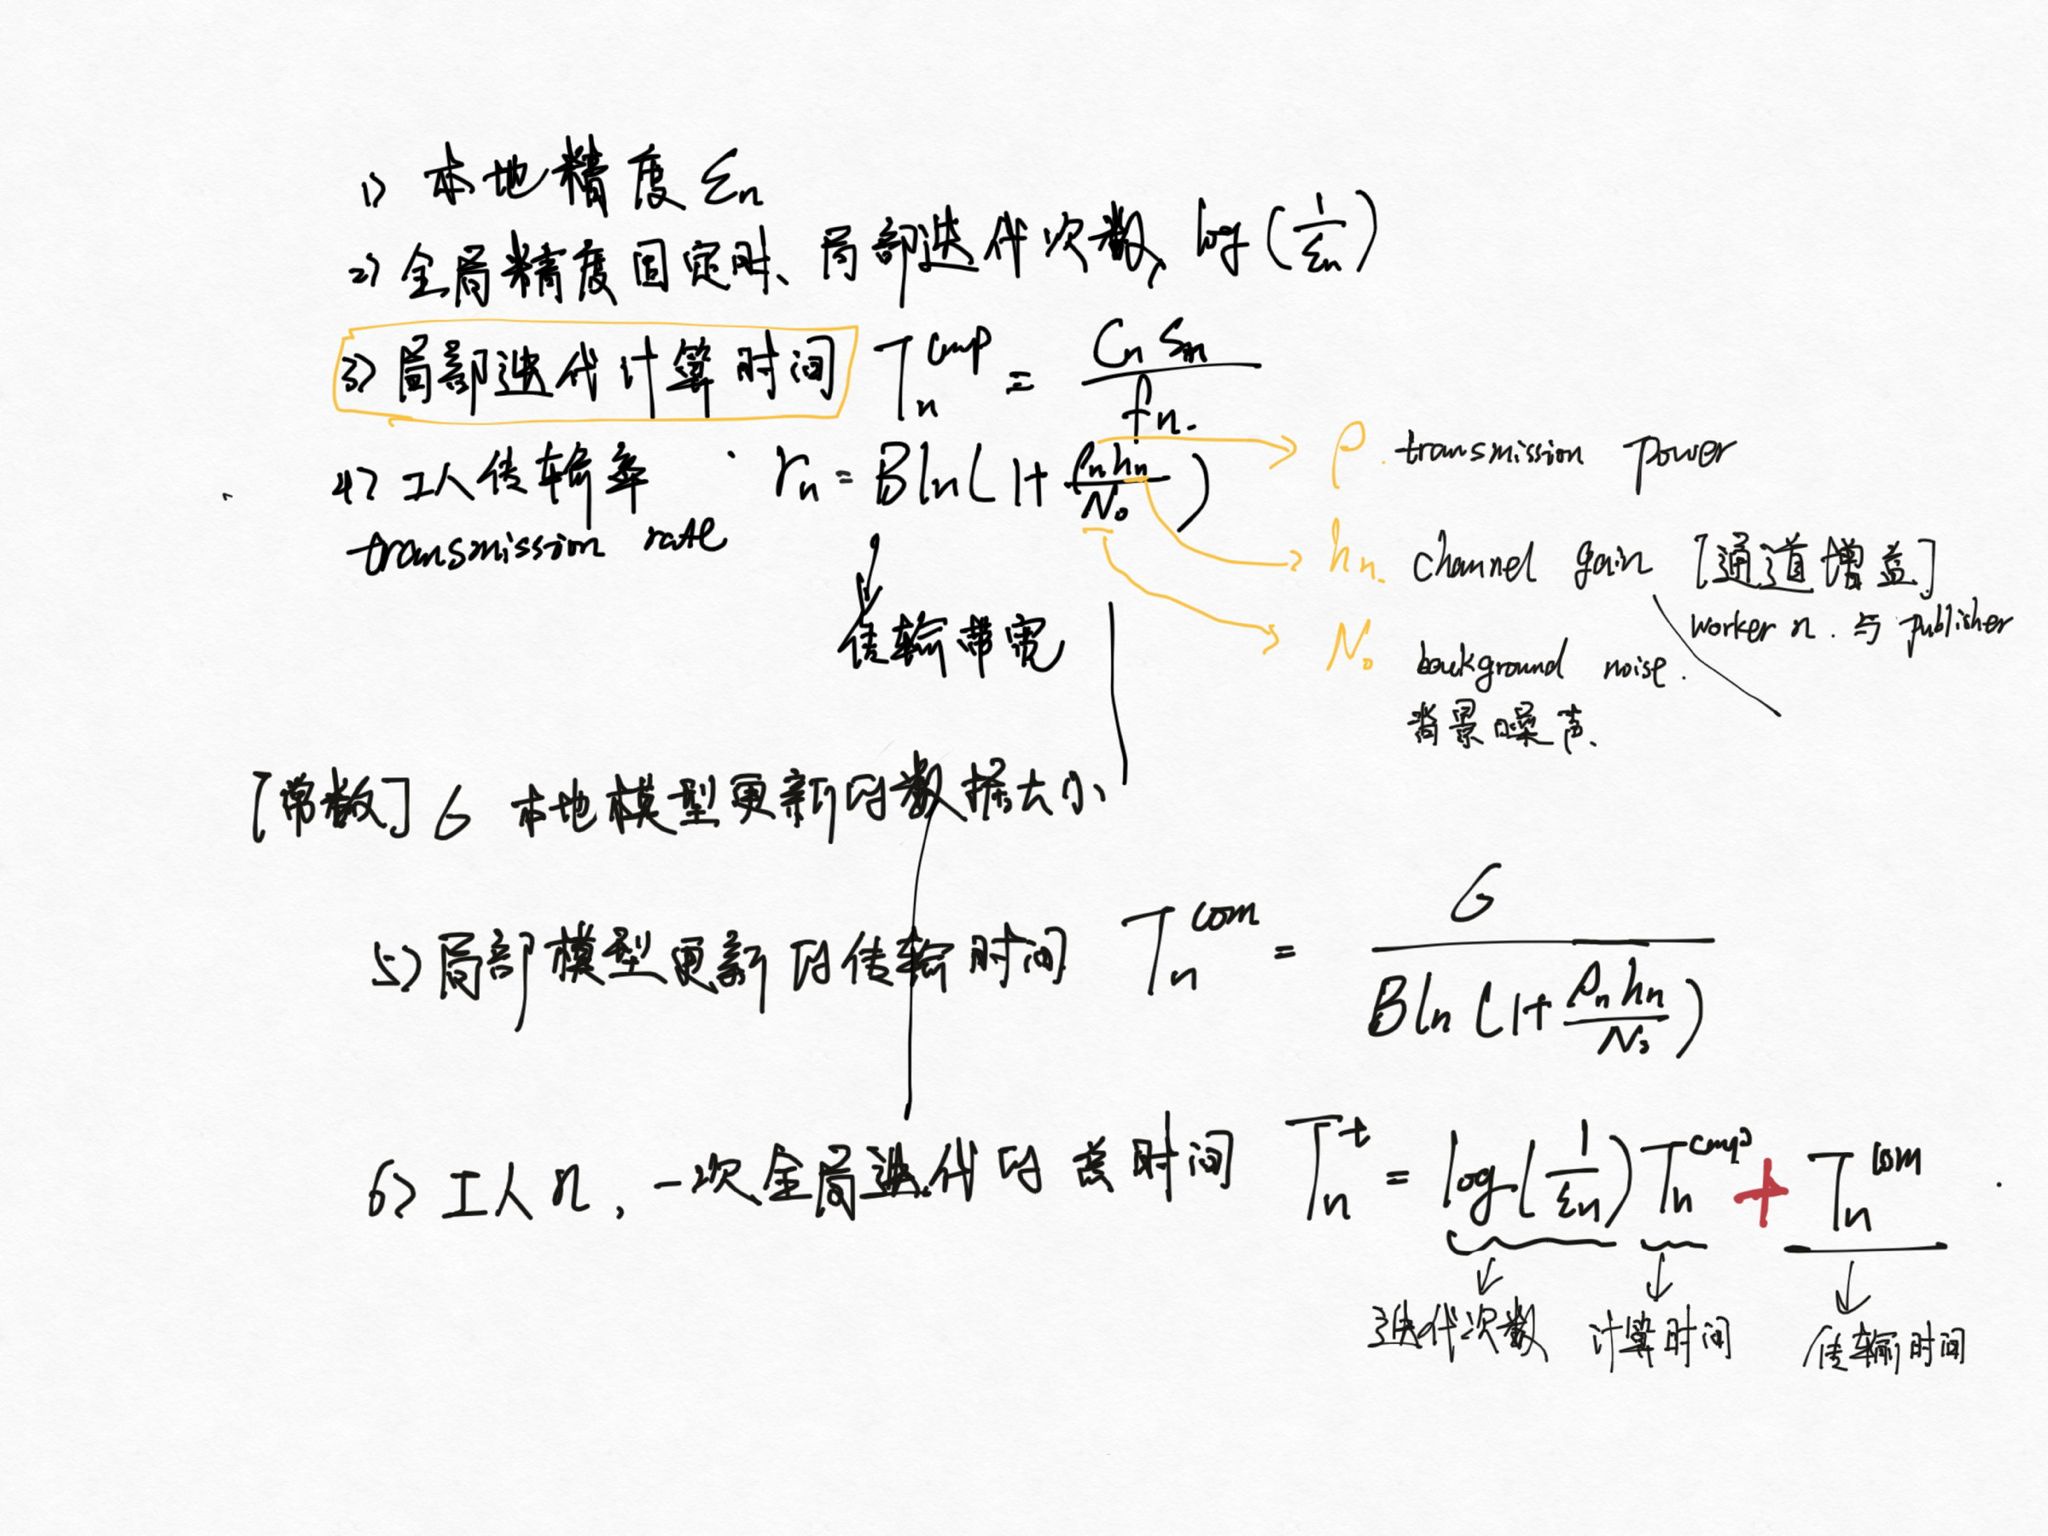 1) 本地精度 εn
2) 全局精度固定时、局部迭代次数, log(1/εn)
3) 局部迭代计算时间 Tn^cmp = Cn Sn / fn.
4) 工人传输率 rn = B ln(1 + ρn hn / N0)
transmission rate
传输带宽
ρ. transmission power
hn. channel gain [通道增益]
worker n. 与 publisher
N0 background noise.
背景噪声、
[常数] σ 本地模型更新的数据大小
5) 局部模型更新的传输时间 Tn^com = σ / B ln(1 + ρn hn / N0)
6) 工人 n, 一次全局迭代的总时间 Tn^t = log(1/εn) Tn^cmp + Tn^com
迭代次数 计算时间 传输时间